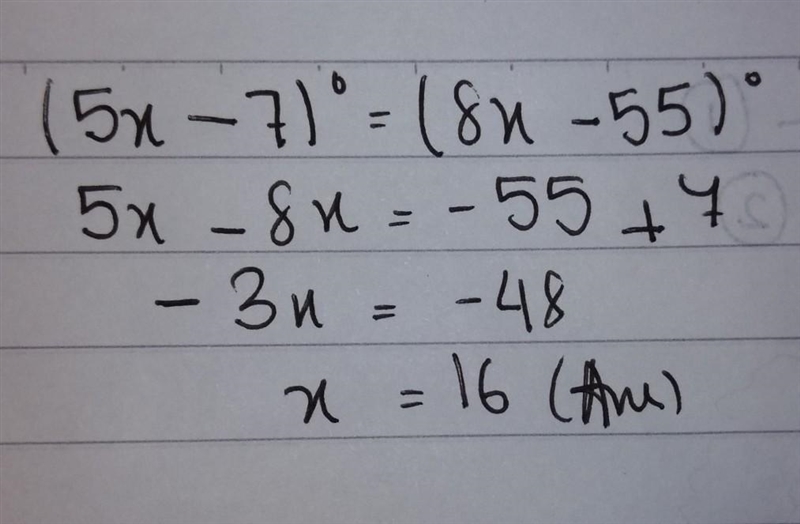 (5x - 7)° = (8x - 55)°
5x - 8x = -55 + 7
- 3x = -48
x = 16 (Ans)